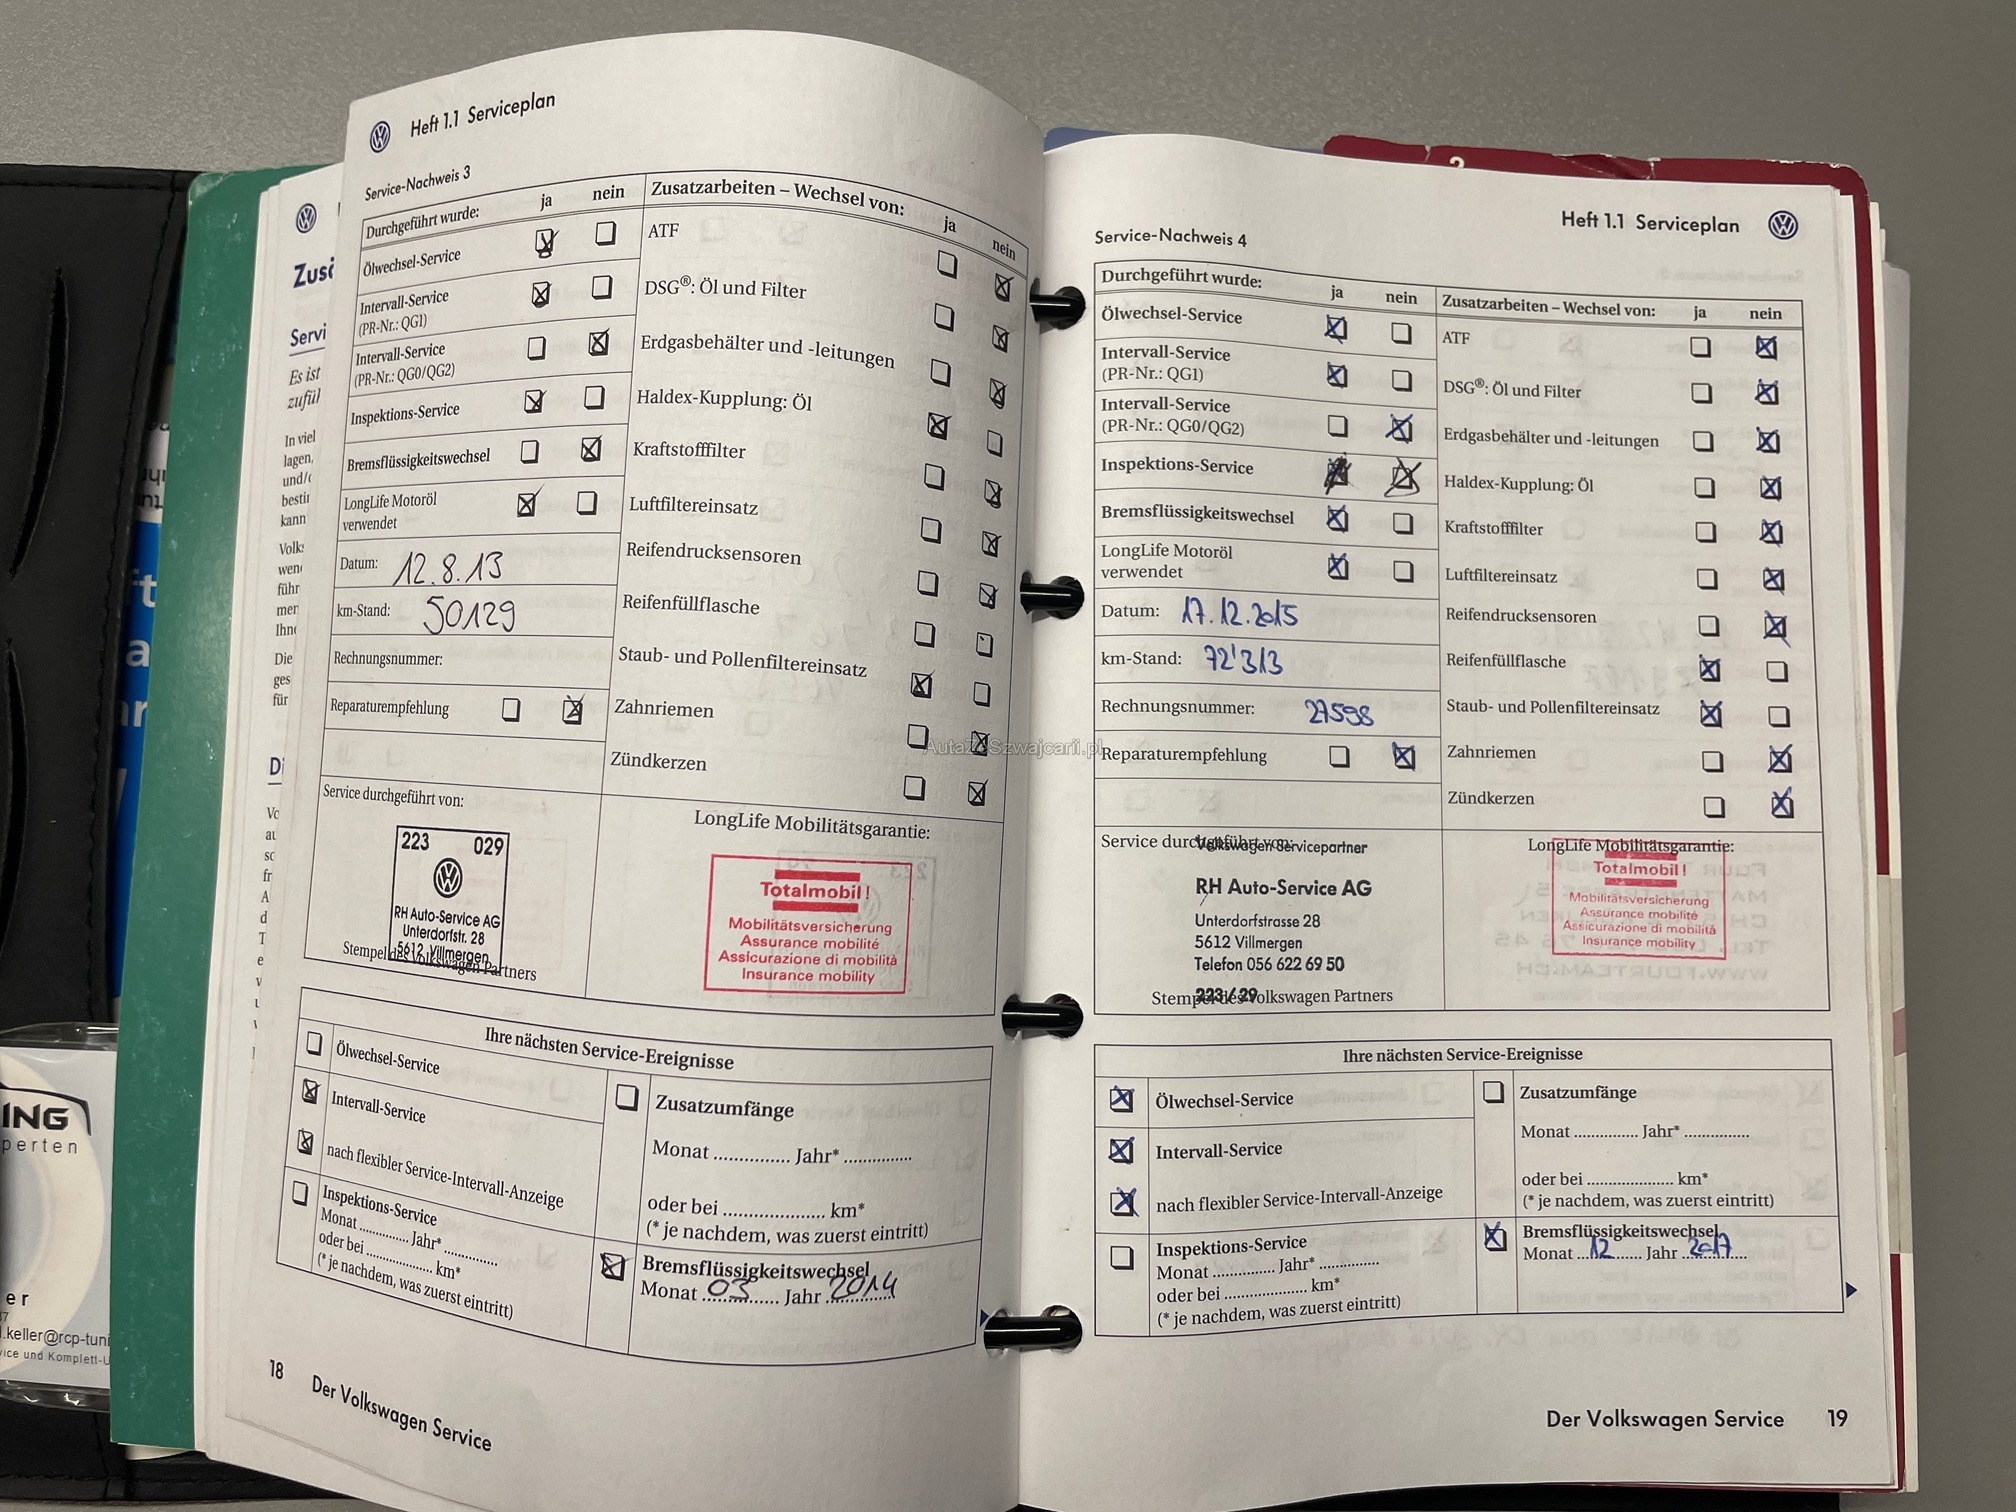 Heft 1.1 Serviceplan
Service-Nachweis 3
Durchgeführt wurde: ja nein
Ölwechsel-Service
Intervall-Service
(PR-Nr.: QG1)
Intervall-Service
(PR-Nr.: QG0/QG2)
Inspektions-Service
Bremsflüssigkeitswechsel
LongLife Motoröl
verwendet
Datum: 12.8.13
km-Stand: 50129
Rechnungsnummer:
Reparaturempfehlung
Zusatzarbeiten – Wechsel von: ja nein
ATF
DSG®: Öl und Filter
Erdgasbehälter und -leitungen
Haldex-Kupplung: Öl
Kraftstofffilter
Luftfiltereinsatz
Reifendrucksensoren
Reifenfüllflasche
Staub- und Pollenfiltereinsatz
Zahnriemen
Zündkerzen
Service durchgeführt von:
223 029
RH Auto-Service AG
Unterdorfstr. 28
5612 Villmergen
Stempel des Volkswagen Partners
LongLife Mobilitätsgarantie:
Totalmobil!
Mobilitätsversicherung
Assurance mobilité
Assicurazione di mobilità
Insurance mobility
Ihre nächsten Service-Ereignisse
Ölwechsel-Service
Intervall-Service
nach flexibler Service-Intervall-Anzeige
Inspektions-Service
Monat ............ Jahr* ............
oder bei ................ km*
(* je nachdem, was zuerst eintritt)
Zusatzumfänge
Monat ............... Jahr* .............
oder bei .................... km*
(* je nachdem, was zuerst eintritt)
Bremsflüssigkeitswechsel
Monat 03 Jahr 2014
18 Der Volkswagen Service
Heft 1.1 Serviceplan
Service-Nachweis 4
Durchgeführt wurde: ja nein
Ölwechsel-Service
Intervall-Service
(PR-Nr.: QG1)
Intervall-Service
(PR-Nr.: QG0/QG2)
Inspektions-Service
Bremsflüssigkeitswechsel
LongLife Motoröl
verwendet
Datum: 17.12.2015
km-Stand: 72'313
Rechnungsnummer: 27598
Reparaturempfehlung
Zusatzarbeiten – Wechsel von: ja nein
ATF
DSG®: Öl und Filter
Erdgasbehälter und -leitungen
Haldex-Kupplung: Öl
Kraftstofffilter
Luftfiltereinsatz
Reifendrucksensoren
Reifenfüllflasche
Staub- und Pollenfiltereinsatz
Zahnriemen
Zündkerzen
Service durchgeführt von:
Volkswagen Servicepartner
RH Auto-Service AG
Unterdorfstrasse 28
5612 Villmergen
Telefon 056 622 69 50
223 / 29
Stempel des Volkswagen Partners
LongLife Mobilitätsgarantie:
Totalmobil!
Mobilitätsversicherung
Assurance mobilité
Assicurazione di mobilità
Insurance mobility
Ihre nächsten Service-Ereignisse
Ölwechsel-Service
Intervall-Service
nach flexibler Service-Intervall-Anzeige
Inspektions-Service
Monat ............. Jahr* .............
oder bei .................. km*
(* je nachdem, was zuerst eintritt)
Zusatzumfänge
Monat .............. Jahr* ..............
oder bei .................... km*
(* je nachdem, was zuerst eintritt)
Bremsflüssigkeitswechsel
Monat 12 Jahr 2017
Der Volkswagen Service 19
Servi
Es ist
zufül
In viel
lagen,
und/
bestir
kann
Volks
führ
mer
Die
ges
für
ING
perten
er
.keller@rcp-tuni
ice und Komplett-U
AutaZeSzwajcarii.pl